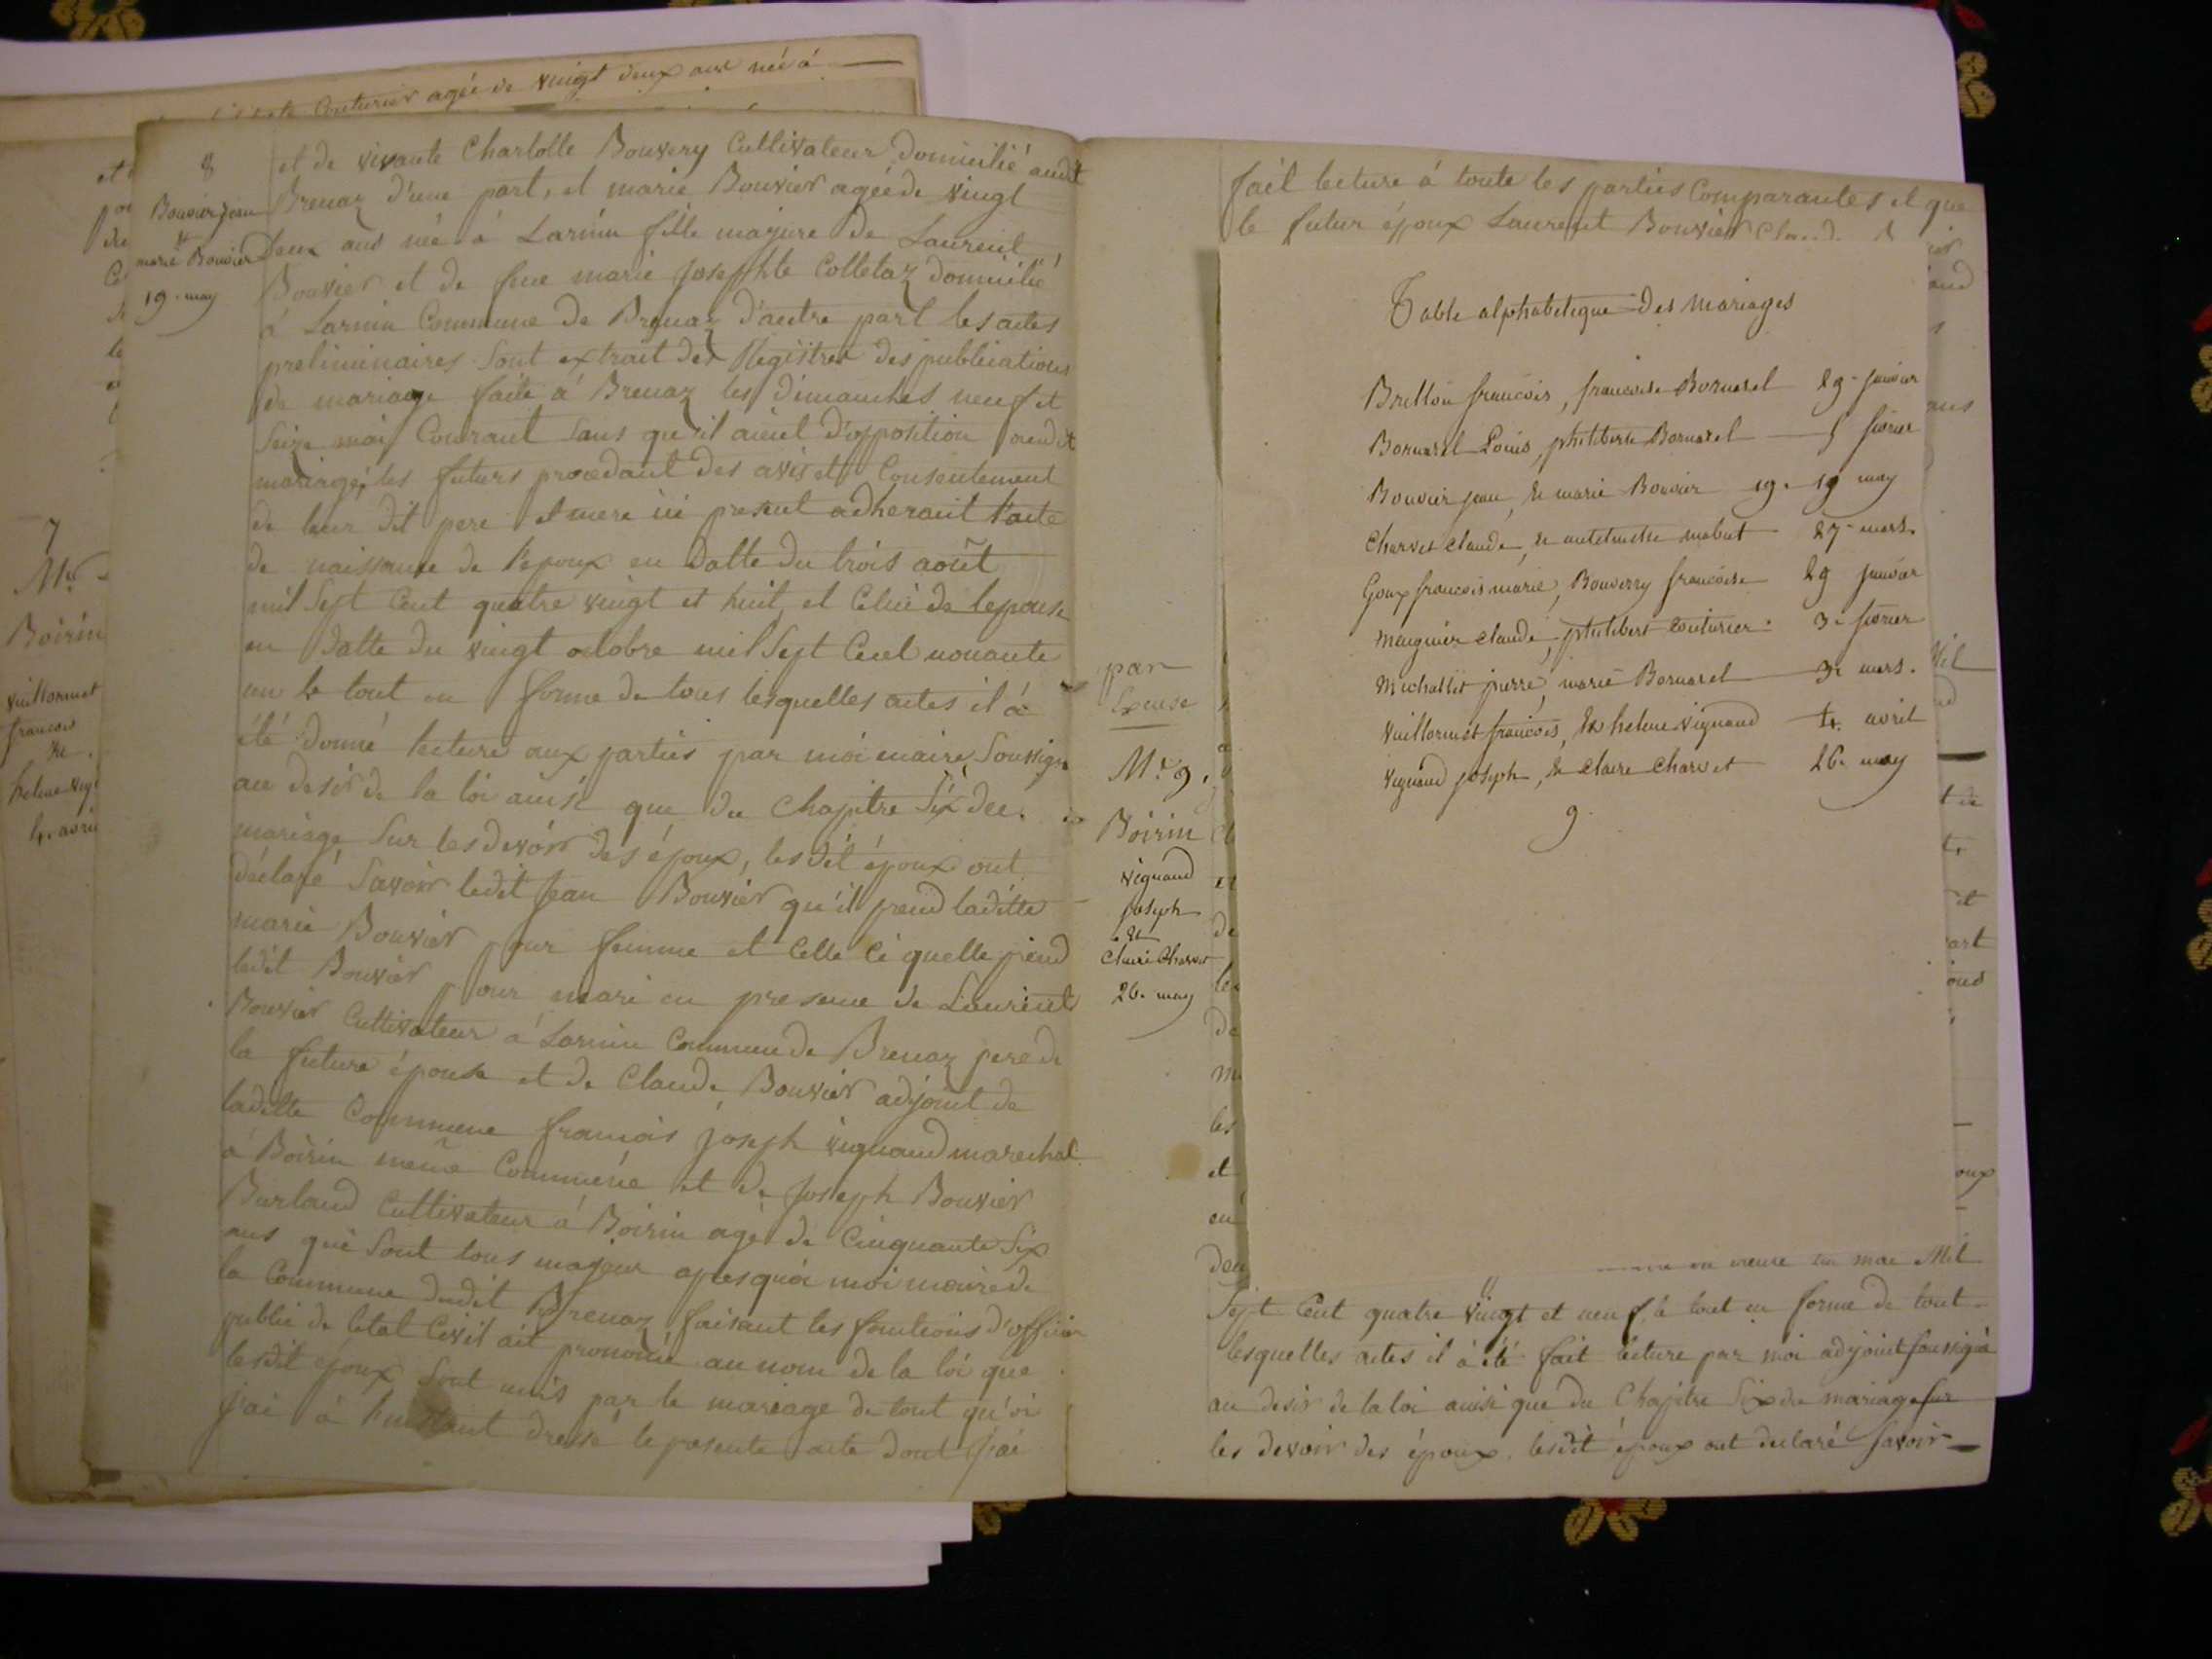 Couturier agée de vingt deux ans née á
8
Bouvier Jean
et
marie Bouvier
19. may
et de vivante Charlotte Bouvery Cultivateur domicilié audit
Brenaz d'une part, et marie Bouvier agée de vingt
deux ans née á Larnin fille majure de Laurent
Bouvier et de feue marie josephte Colletaz domicilié
á Larnin Commune de Brenaz d'autre part les actes
preliminaires sont extrait des Registres des publications
de mariage faite á Brenaz les dimanches neuf et
seize mai Courant sans qu'il aient d'opposition audit
mariage, les futurs procedant des avis et Consentement
de leur dit pere et mere ici present adherant l'acte
de naissance de l'epoux en datte du trois août
mil sept Cent quatre vingt et huit, et Celui de lepouse
en datte du vingt octobre mil sept Cent nonante
un le tout en forme de tous lesquelles actes il á
été donné lecture aux parties par moi maire soussigné
au desir de la loi ainsi que du chapitre six des
mariage sur les devoir des époux, lesdit époux ont
déclaré savoir ledit Jean Bouvier qu'il prend laditte
marie Bouvier pour femme et Celle Ci quelle prend
ledit Bouvier pour mari en presence de Laurent
Bouvier Cultivateur á Larnin Commune de Brenaz pere de
la future épouse et de Claude Bouvier adjoint de
laditte Commune francois joseph vignand marechal
á Boirin meme Commune et de joseph Bouvier
Burland Cultivateur á Boirin agé de Cinquante six
ans qui sont tous majeur apres quoi moi maire de
la Commune dudit Brenaz faisant les fonctions d'officier
public de letat Civil ait prononcé au nom de la loi que
lesdit époux sont unis par le mariage de tout qu'oi
j'ai á l'instant dressé le presente acte dont j'ai
7
Boirin
vuillormet
francois
et
4. avril
fait lecture á toute les parties Comparantes et que
le futur époux Laurent Bouvier
par
Nº. 9.
Boirin
vignand
joseph
et
Claire Charvet
26. may
Table alphabetique des Mariages
Brillon francois, francoise Bornarel 29. janvier
Bornarel Louis, philiberte Bornarel 5 fevrier
Bouvier jean, et marie Bouvier 19. 19 may
Charvet claude, et mabut 27. mars.
Goux francois marie, Bouverry francoise 29 janvier
claude, philibert Couturier 3. fevrier
Michallet pierre, marie Bornarel 3. mars.
Vuillormet francois, et helene vignand 4. avril
vignand joseph, et claire Charvet 26. may
9
Sept Cent quatre vingt et neuf, le tout en forme de tout
lesquelles actes il á été fait lecture par moi adjoint soussigné
au desir de la loi ainsi que du Chapitre Six de mariage sur
les devoir des époux, lesdit époux ont declaré savoir